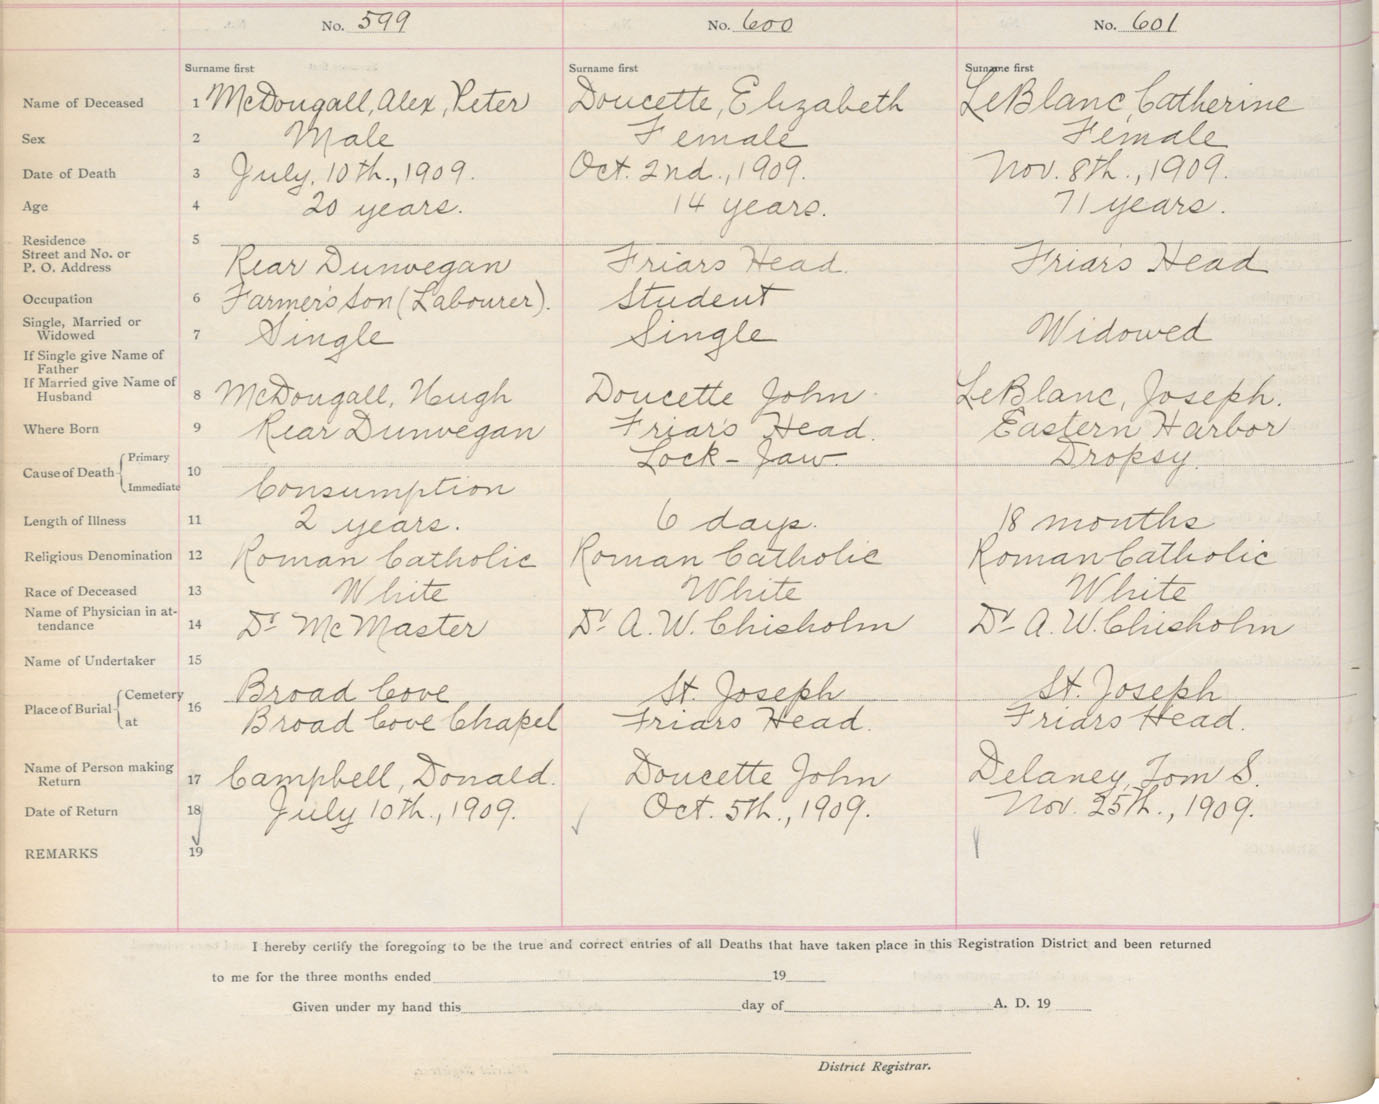 No. 599 No. 600 No. 601
Surname first Surname first Surname first
Name of Deceased 1 McDougall, Alex, Peter Doucette, Elizabeth LeBlanc, Catherine
Sex 2 Male Female Female
Date of Death 3 July, 10th., 1909. Oct. 2nd., 1909. Nov. 8th., 1909.
Age 4 20 years. 14 years. 71 years.
Residence 5
Street and No. or
P. O. Address Rear Dunvegan Friars Head. Friar's Head
Occupation 6 Farmer's Son (Labourer). Student
Single, Married or
Widowed 7 Single Single Widowed
If Single give Name of
Father
If Married give Name of
Husband 8 McDougall, Hugh Doucette John LeBlanc, Joseph.
Where Born 9 Rear Dunvegan Friar's Head. Eastern Harbor
Cause of Death Primary 10 Lock-Jaw. Dropsy.
Immediate Consumption
Length of Illness 11 2 years. 6 days. 18 months
Religious Denomination 12 Roman Catholic Roman Catholic Roman Catholic
Race of Deceased 13 White White White
Name of Physician in at-
tendance 14 Dr McMaster Dr A. W. Chisholm Dr A. W. Chisholm
Name of Undertaker 15
Place of Burial Cemetery 16 Broad Cove St. Joseph St. Joseph
at Broad Cove Chapel Friars Head. Friars Head.
Name of Person making
Return 17 Campbell, Donald. Doucette John Delaney, Tom S.
Date of Return 18 July 10th., 1909. Oct. 5th., 1909. Nov. 25th., 1909.
REMARKS 19
I hereby certify the foregoing to be the true and correct entries of all Deaths that have taken place in this Registration District and been returned
to me for the three months ended 19
Given under my hand this day of A. D. 19
District Registrar.